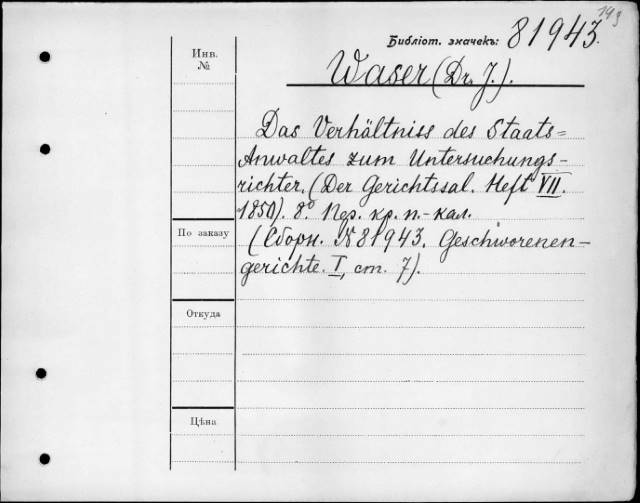 143
Библіот. значекъ: 81943.
Инв.
№
Waser (Dr. J.).
Das Verhältniss des Staats=
Anwaltes zum Untersuchungs-
richter. (Der Gerichtssal. Heft VII.
1850). 8º Пер. кр. п.-кал.
По заказу
(Сборн. №81943. Geschworenen-
gerichte. I, ст. 7).
Откуда
Цѣна